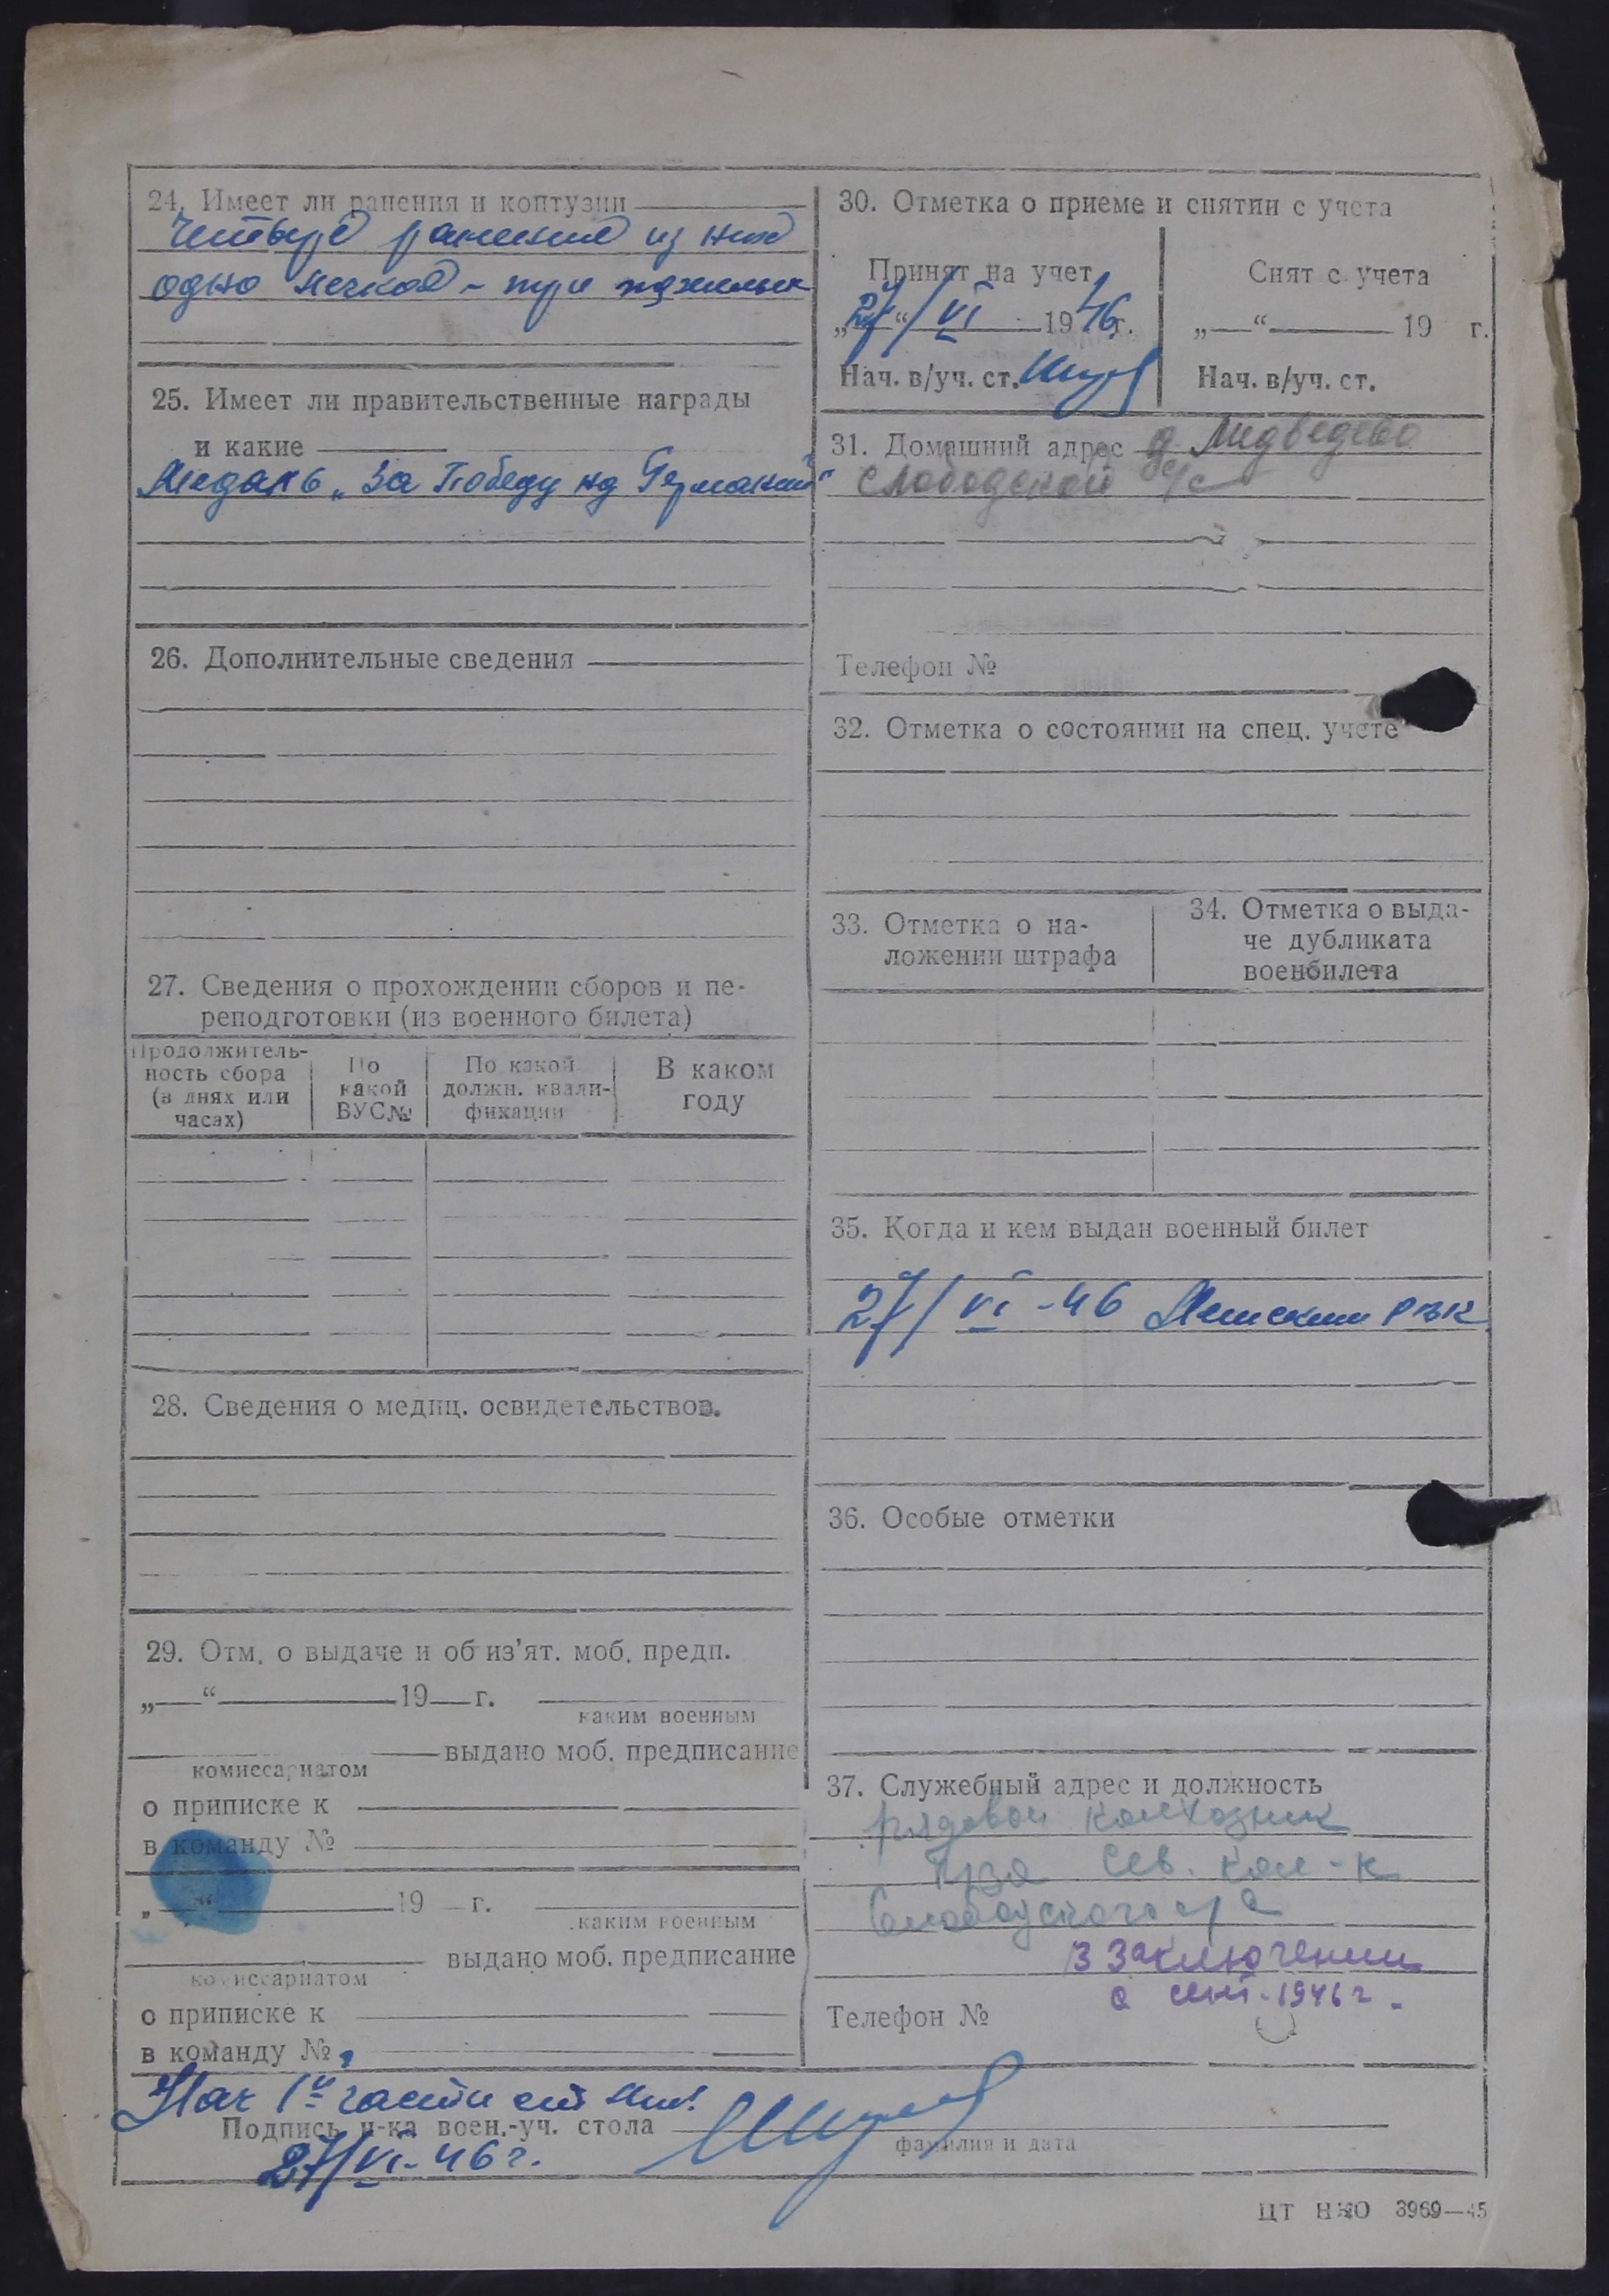 24. Имеет ли ранения и контузии
Четыре ранения из них
одно легкое - три тяжелых
25. Имеет ли правительственные награды
и какие
Медаль „За Победу над Германией"
26. Дополнительные сведения
27. Сведения о прохождении сборов и пе-
реподготовки (из военного билета)
Продолжитель-
ность сбора
(в днях или
часах)
По
какой
ВУС №
По какой
должн. квали-
фикации
В каком
году
28. Сведения о медиц. освидетельствов.
29. Отм. о выдаче и об из'ят. моб. предп.
„—“ 19 г.
каким военным
выдано моб. предписание
комиссариатом
о приписке к
в команду №
„—“ 19 г.
каким военным
выдано моб. предписание
комиссариатом
о приписке к
в команду №
30. Отметка о приеме и снятии с учета
Принят на учет
„27“ VI 1946 г.
Нач. в/уч. ст.
Снят с учета
„—“ 19 г.
Нач. в/уч. ст.
31. Домашний адрес д. Медведево
Слободской с/с
Телефон №
32. Отметка о состоянии на спец. учете
33. Отметка о на-
ложении штрафа
34. Отметка о выда-
че дубликата
военбилета
35. Когда и кем выдан военный билет
27/VI-46 РВК
36. Особые отметки
37. Служебный адрес и должность
рядовой колхозник
сев. кол-к
Слободского с/с
В заключении
с сент. 1946 г.
Телефон №
Нач 1й части ст лт.
Подпись н-ка воен.-уч. стола
фамилия и дата
27/VI-46 г.
ЦТ НКО 3969—45